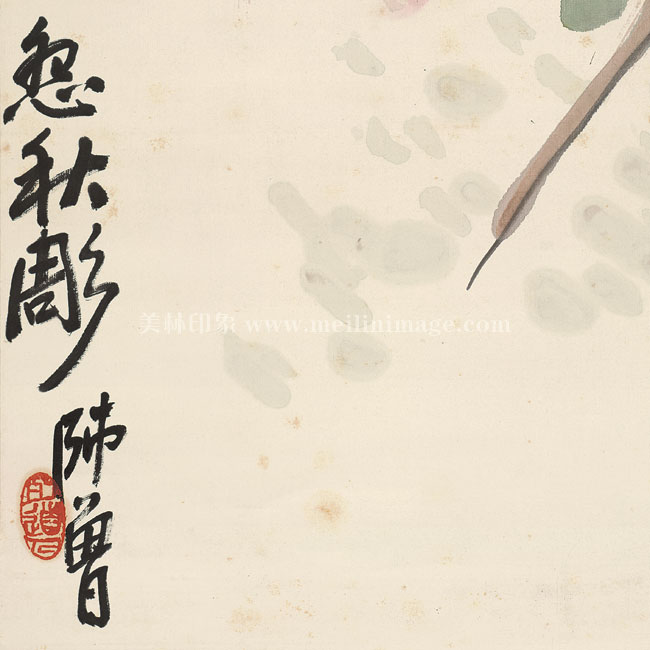 怨秋彫
師曾
美林印象 www.meilinimage.com